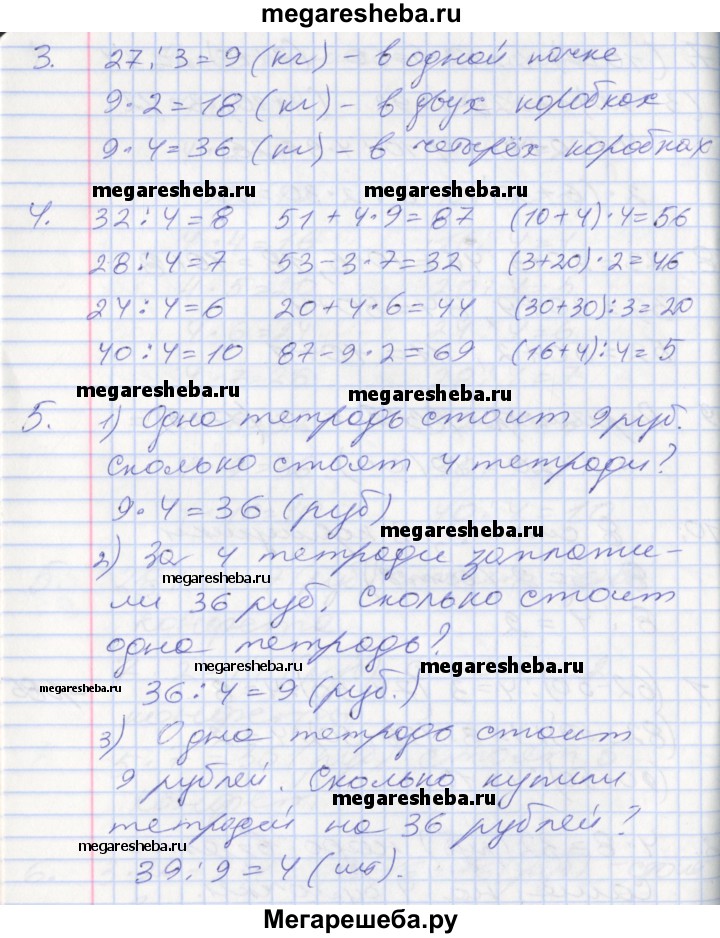 megaresheba.ru
3. 27 : 3 = 9 (кг) – в одной пачке
9 · 2 = 18 (кг) – в двух коробках
9 · 4 = 36 (кг) – в четырёх коробках
megaresheba.ru megaresheba.ru
4. 32 : 4 = 8 51 + 4 · 9 = 87 (10 + 4) · 4 = 56
28 : 4 = 7 53 – 3 · 7 = 32 (3 + 20) · 2 = 46
24 : 4 = 6 20 + 4 · 6 = 44 (30 + 30) : 3 = 20
40 : 4 = 10 87 – 9 · 2 = 69 (16 + 4) : 4 = 5
megaresheba.ru megaresheba.ru
5. 1) Одна тетрадь стоит 9 руб.
Сколько стоят 4 тетради?
9 · 4 = 36 (руб)
megaresheba.ru
2) За 4 тетради заплати-
megaresheba.ru
ли 36 руб. Сколько стоит
одна тетрадь?
megaresheba.ru megaresheba.ru
megaresheba.ru
36 : 4 = 9 (руб.)
3) Одна тетрадь стоит
9 рублей. Сколько купили
megaresheba.ru
тетрадей на 36 рублей?
megaresheba.ru
39 : 9 = 4 (шт).
Мегарешеба.ру